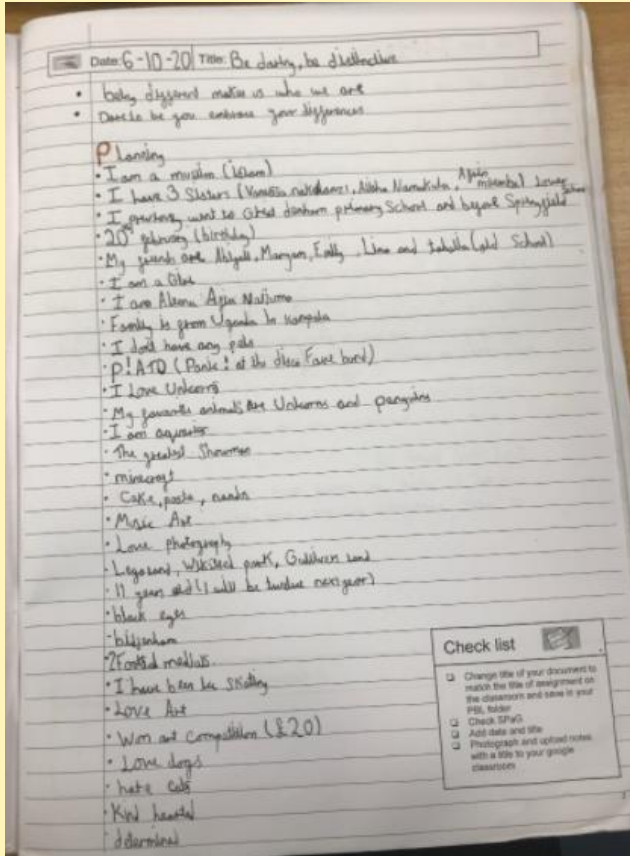 Date: 6-10-20 Title: Be daring, be distinctive
• being different makes us who we are
• Dare to be you embrace your differences
Planning
• I am a muslim (islam)
• I have 3 Sisters (
• I previously went to Great denham primary School and before Springfield lower School
• 20th february (birthday)
• My friends are Abigail, Maryam, Emily, Lina and (old School)
• I am a
• I am
• Family is from Uganda in kampala
• I don't have any pets
• P!ATD (Panic! at the disco Fave band)
• I Love Unicorns
• My favourite animals are Unicorns and penguins
• I am
• The greatest Showman
• minecraft
• Cake, pasta, nandos
• Music Art
• Love photography
• Legoland, Wicksteed park, Gullivers land
• 11 years old (I will be twelve next year)
• black eyes
• biddenham
•
• I have been ice Skating
• Love Art
• Won art Competition (£20)
• Love dogs
• hate cats
• Kind hearted
• determined
Check list
Change title of your document to
match the title of assignment on
the classroom and save in your
PBL folder
Check SPaG
Add date and title
Photograph and upload notes
with a title to your google
classroom